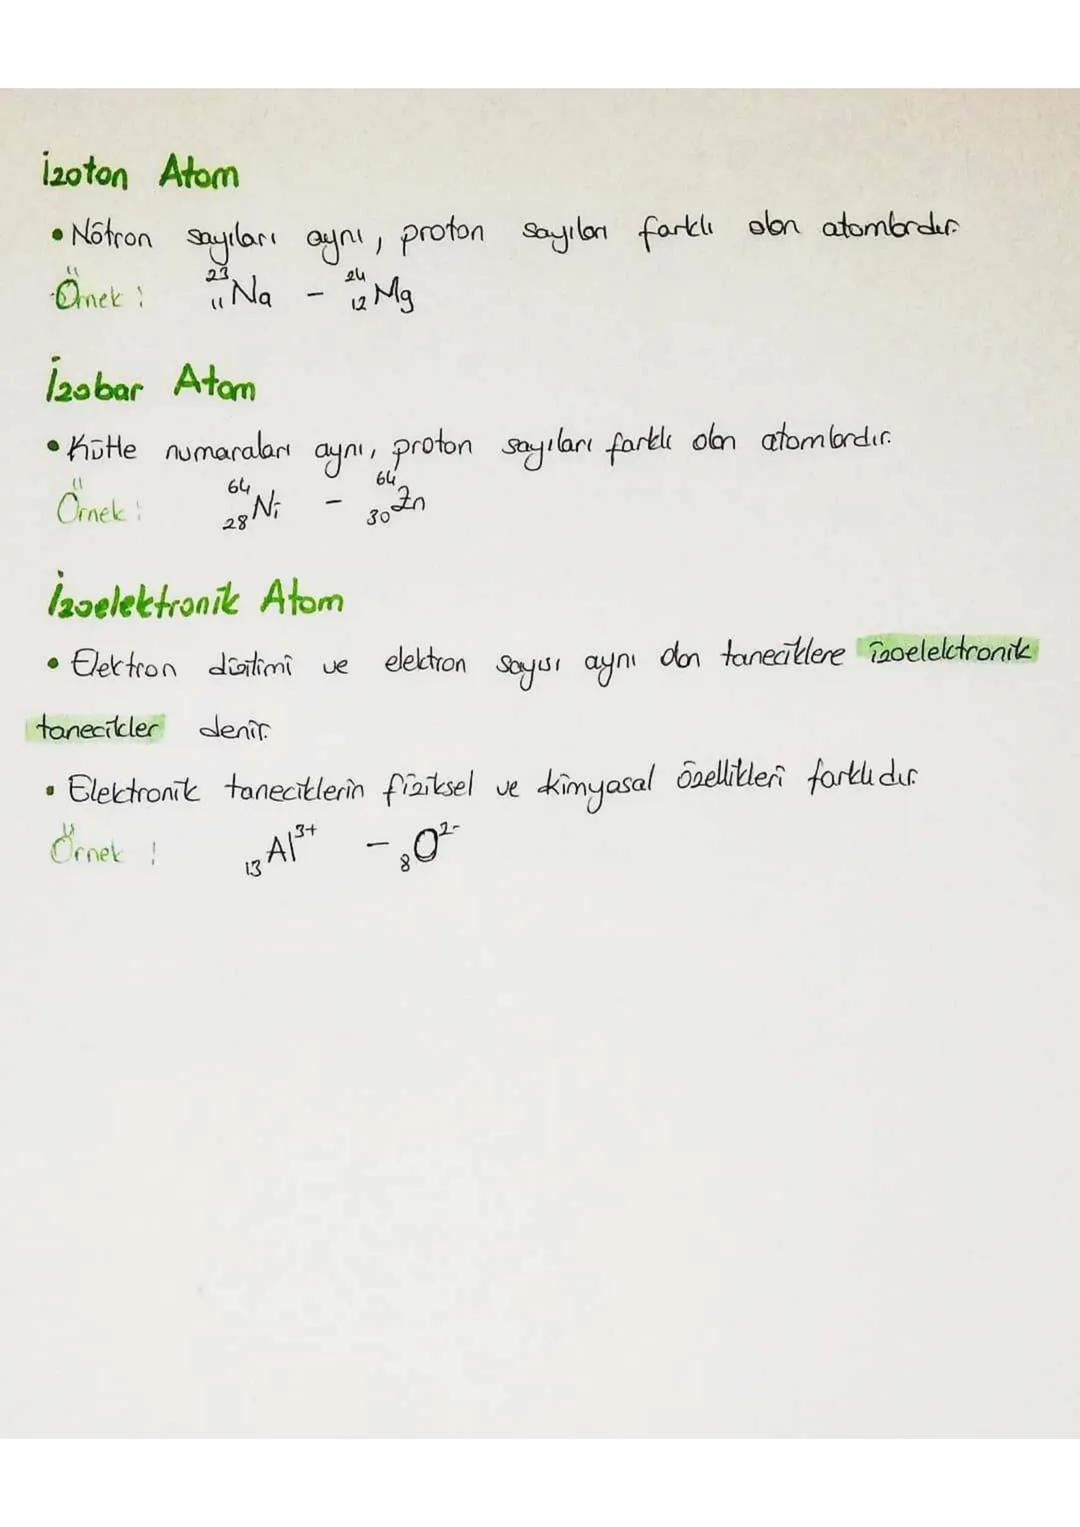 İzoton Atom
• Nötron sayıları aynı, proton sayıları farklı olan atomlardır.
Örnek : ²³₁₁Na - ²⁴₁₂Mg
İzobar Atom
• Kütle numaraları aynı, proton sayıları farklı olan atomlardır.
Örnek : ⁶⁴₂₈Ni - ⁶⁴₃₀Zn
İzoelektronik Atom
• Elektron dizilimi ve elektron sayısı aynı olan taneciklere izoelektronik
tanecikler denir.
• Elektronik taneciklerin fiziksel ve kimyasal özellikleri farklıdır.
Örnek : ₁₃Al³⁺ - ₈O²⁻